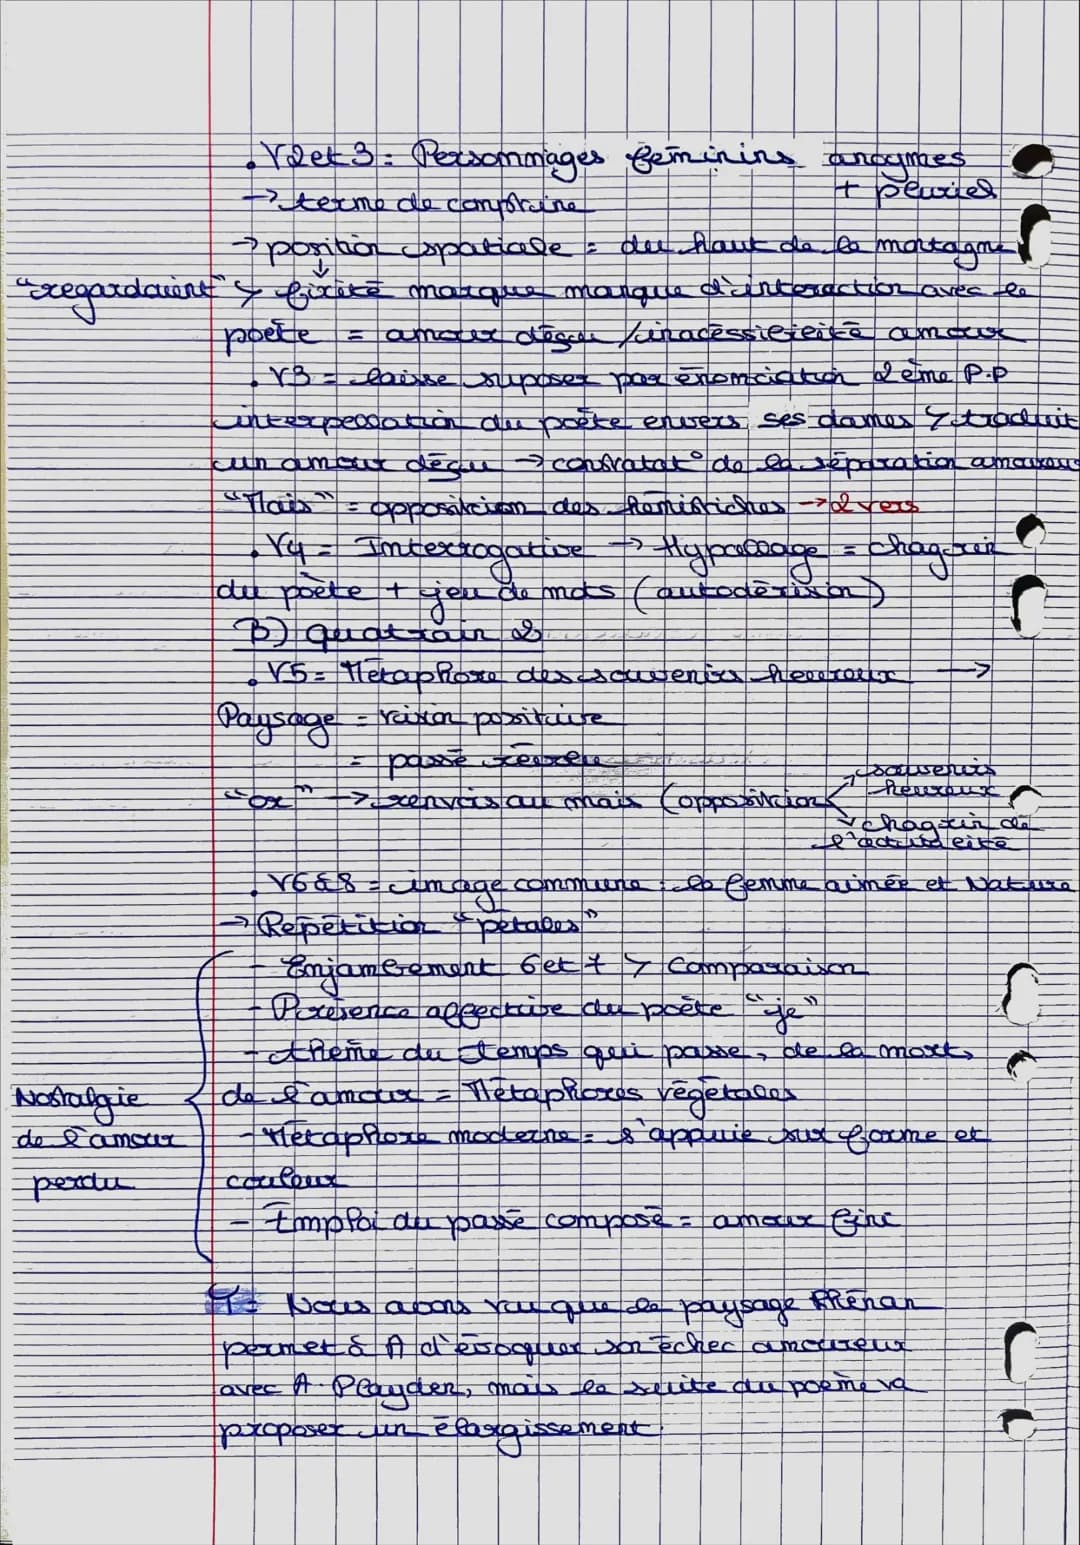 . V2 et 3 = Personnages féminins anoymes
+ pluriel
→ terme de comptine
→ position spatiale = du haut de la montagne
"regardaient" ↳ fixité marque manque d'interaction avec le
poète = amour déçu / inacéssibilité amour
. V3 = laisse suposer par énonciation 2ème P.P
interpellation du poète envers ses dames ↳ traduit
un amour déçu → constatat° de la séparation amoureuse
"Mais" = opposition des hémistiches → 2 vers
. V4 = Interrogative → Hypallage = chagrin
du poète + jeu de mots (autodérision)
B) quatrain 2
. V5 = Métaphore des souvenirs heureux →
Paysage = vision positive
= passé révolu
"or" → renvois au mais (opposition
souvenirs
heureux
chagrin de
l'actualité
. V6 & 8 = image commune : la femme aimée et Nature
→ Répétition "pétales"
- Enjambement 6 et 7 ↳ Comparaison
- Présence affective du poète "je"
- thème du temps qui passe, de la mort,
de l'amour = Métaphores végétales
- Métaphore moderne = s'appuie sur forme et
couleur
- Emploi du passé composé = amour fini
Nostalgie
de l'amour
perdu
T = Nous avons vu que le paysage Rhénan
permet à A d'évoquer son échec amoureux
avec A. Playden, mais la suite du poème va
proposer un élargissement.